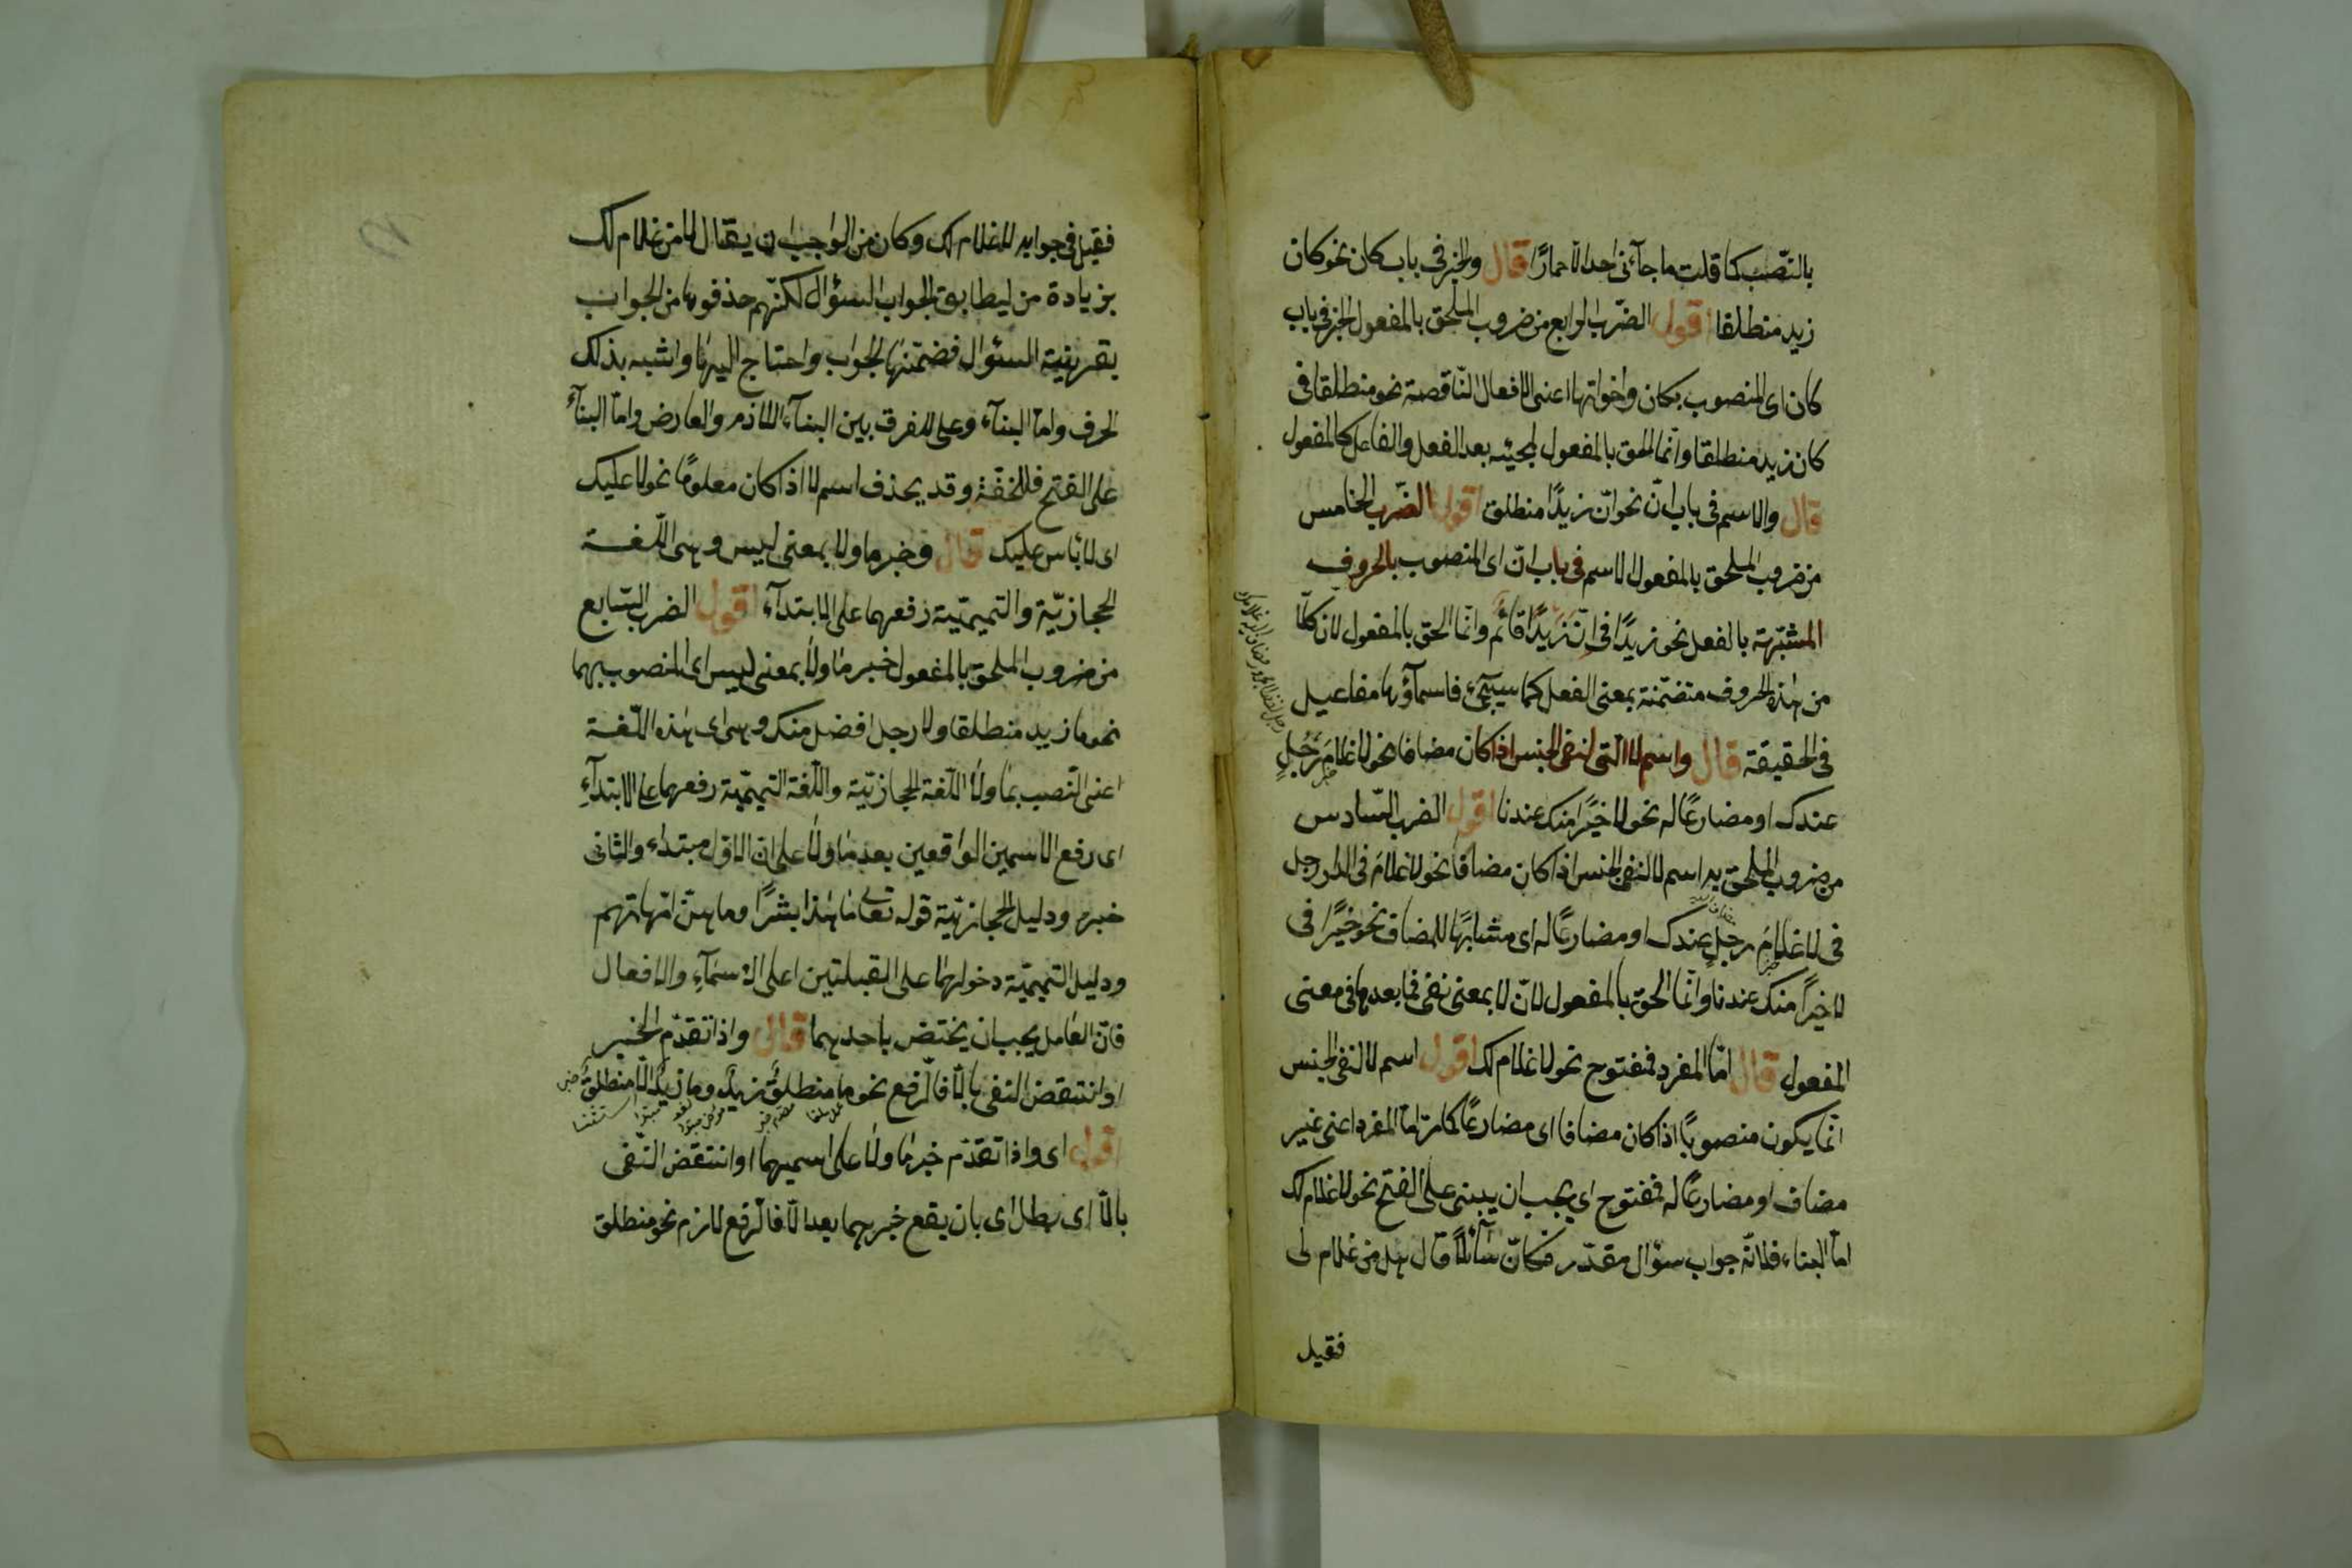 بالنّصب كما قلت ما جآءنى احد الّا حمارًا قال والخبر فى باب كان نحو كان
زيد منطلقا اقول الضّرب الرابع من ضروب الملحق بالمفعول الخبر فى باب
كان اى المنصوب بكان واخواتها اعنى الافعال النّاقصة نحو منطلقا فى
كان زيد منطلقا وانّما الحق بالمفعول لمجيئه بعد الفعل والفاعل كالمفعول
قال والاسم فى باب انّ نحو انّ زيدًا منطلق اقول الضّرب الخامس
من ضروب الملحق بالمفعول الاسم فى باب انّ اى المنصوب بالحروف
المشبّهة بالفعل نحو زيدًا فى انّ زيدًا قائم وانّما الحق بالمفعول لان كلّا
من هذه الحروف متضمّنة بمعنى الفعل كما سيجىء فاسمآؤها مفاعيل
فى الحقيقة قال واسم لا الّتى لنفى الجنس اذا كان مضافا نحو لا غلامَ رَجُلٍ
عندك او مضارعًا له نحو لا خيرًا منك عندنا اقول الضرب السّادس
من ضروب الملحق به اسم لا لنفى الجنس اذا كان مضافا نحو لا غلامَ فى الدار رجل
فى لا غلامَ رجلٍ عندك او مضارعًا له اى مشابهًا للمضاف نحو خيرًا فى
لا خيرًا منك عندنا وانّما الحق بالمفعول لانّ لا بمعنى نفى فما بعدها فى معنى
المفعول قال امّا المفرد فمفتوح نحو لا غلام لك اقول اسم لا لنفى الجنس
انّما يكون منصوبًا اذا كان مضافا اى مضارعًا كما مرّ امّا المفرد اعنى غير
مضاف او مضارعًا له فمفتوح اى يجب ان يبنى على الفتح نحو لا غلام لك
امّا البناء فلانّه جواب سؤال مقدّر فكانّ سآئلًا قال هل من غلام لى
فقيل
فقيل فى جوابه لا غلام لك وكان من الواجب ان يقال لا من غلام لك
بزيادة من ليطابق الجواب السؤال لكنّهم حذفوها من الجواب
بقرينة السئوال فضمّنها الجواب واحتاج اليها واشبه بذلك
الحرف وامّا البنآء وعلى للفرق بين البنآء اللازم والعارض وامّا البنآء
على الفتح فللخفّة وقد يحذف اسم لا اذا كان معلومًا نحو لا عليك
اى لا بأس عليك قال وخبر ما ولا بمعنى ليس وهى اللّغة
الحجازيّة والتميميّة رفعهما على الابتدآء اقول الضرب السّابع
من ضروب الملحق بالمفعول خبر ما ولا بمعنى ليس اى المنصوب بهما
نحو ما زيد منطلقا ولا رجل افضل منك وهى اى هذه اللّغة
اعنى النّصب بما ولا اللّغة الحجازيّة واللّغة التميميّة رفعهما على الابتدآءِ
اى رفع الاسمين الواقعين بعد ما ولا على ان الاوّل مبتداء والثانى
خبره ودليل الحجازيّة قوله تعالى ما هذا بشرًا وما هنّ امّهاتهم
ودليل التميميّة دخولهما على القبيلتين اعلى الاسمآءِ والافعال
فانّ العامل يجب ان يختصّ باحديهما قال واذا تقدّم الخبر
او انتقض النفى بالّا فالّرفع نحو ما منطلقٌ زيدٌ وما زيدٌ الّا منطلقٌ
اقول اى واذا تقدّم خبر ما ولا على اسميهما او انتقض النّفى
بالّا اى بطل اى بان يقع خبرهما بعد الّا فالّرفع لازم نحو منطلق